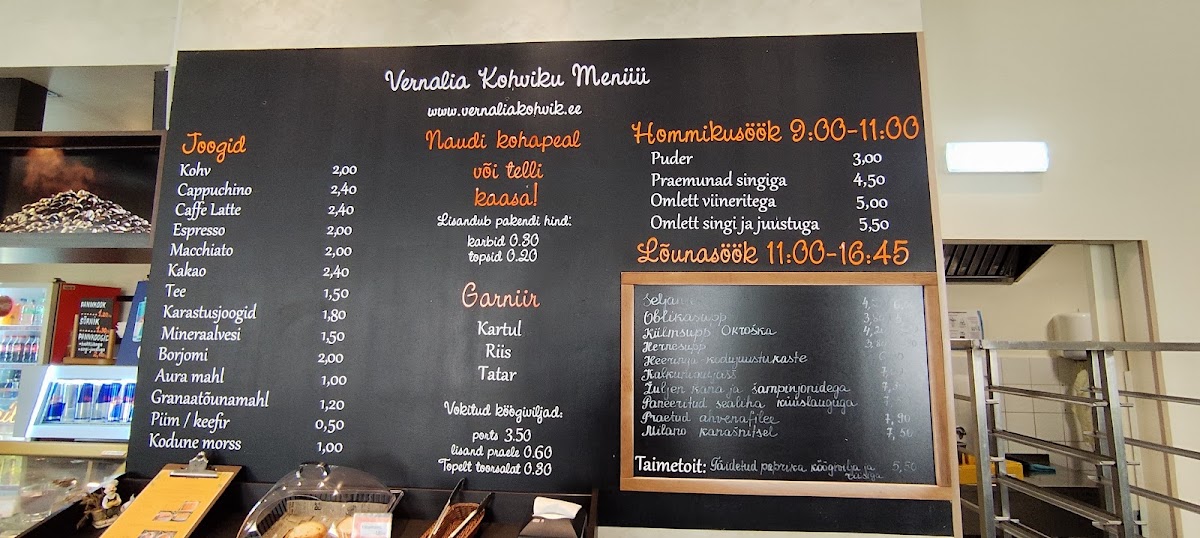 Vernalia Kohviku Menüü
www.vernaliakohvik.ee
Joogid
Kohv 2,00
Cappuchino 2,40
Caffe Latte 2,40
Espresso 2,00
Macchiato 2,00
Kakao 2,40
Tee 1,50
Karastusjoogid 1,80
Mineraalvesi 1,50
Borjomi 2,00
Aura mahl 1,00
Granaatõunamahl 1,20
Piim / keefir 0,50
Kodune morss 1,00
Naudi kohapeal
või telli
kaasa!
Lisandub pakendi hind:
karbid 0.30
topsid 0.20
Garniir
Kartul
Riis
Tatar
Vokitud köögiviljad:
ports 3.50
lisand praele 0.60
Topelt toorsalat 0.30
Hommikusöök 9:00-11:00
Puder 3,00
Praemunad singiga 4,50
Omlett viineritega 5,00
Omlett singi ja juustuga 5,50
Lõunasöök 11:00-16:45
Oblikasupp
Külmsupp Okroška
Hernesupp
Žuljen kana ja šampinjonidega
Paneeritud sealiha küüslauguga
Praetud ahvenafilee 7,90
Milano kanašnitsel 7,50
Taimetoit: Täidetud paprika köögivilja ja 5,50
PANNKOOK